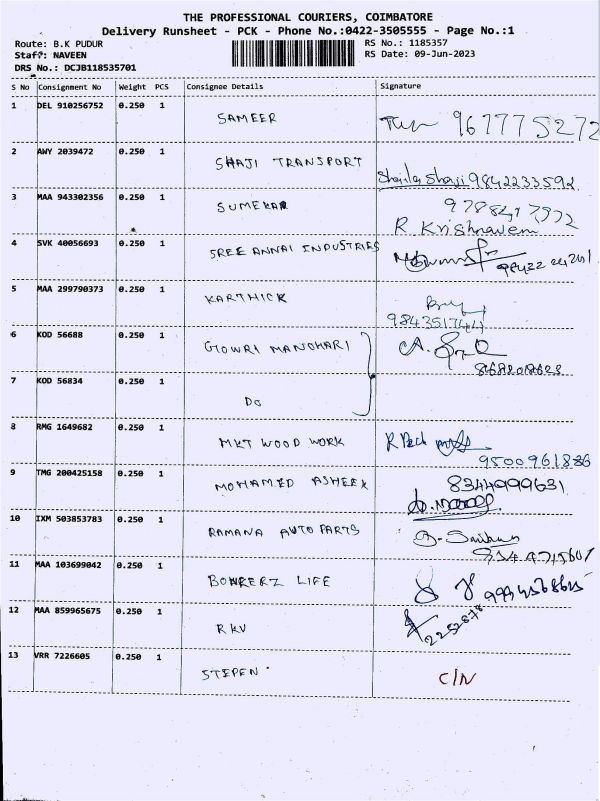 THE PROFESSIONAL COURIERS, COIMBATORE
Delivery Runsheet - PCK - Phone No.:0422-3505555 - Page No.:1
Route: B.K PUDUR RS No.: 1185357
Staff: NAVEEN RS Date: 09-Jun-2023
DRS No.: DCJB118535701
S No Consignment No Weight PCS Consignee Details Signature
1 DEL 910256752 0.250 1 SAMEER 9677775272
2 AWY 2039472 0.250 1 SHAJI TRANSPORT Shaji 9842233592
3 MAA 943302356 0.250 1 SUMEKAR
R Krishnaveni
4 SVK 40056693 0.250 1 SREE ANNAI INDUSTRIES
5 MAA 299790373 0.250 1 KARTHICK
6 KOD 56688 0.250 1 GOWRI MANOHARI
7 KOD 56834 0.250 1 DO
8 RMG 1649682 0.250 1 MKT WOOD WORK
9500961886
9 TMG 200425158 0.250 1 MOHAMED ASHEEK 8344999631
10 IXM 503853783 0.250 1 RAMANA AUTO PARTS
11 MAA 103699042 0.250 1 BOWRERZ LIFE
12 MAA 859965675 0.250 1 RKV
13 VRR 7226605 0.250 1 STEPEN C/N